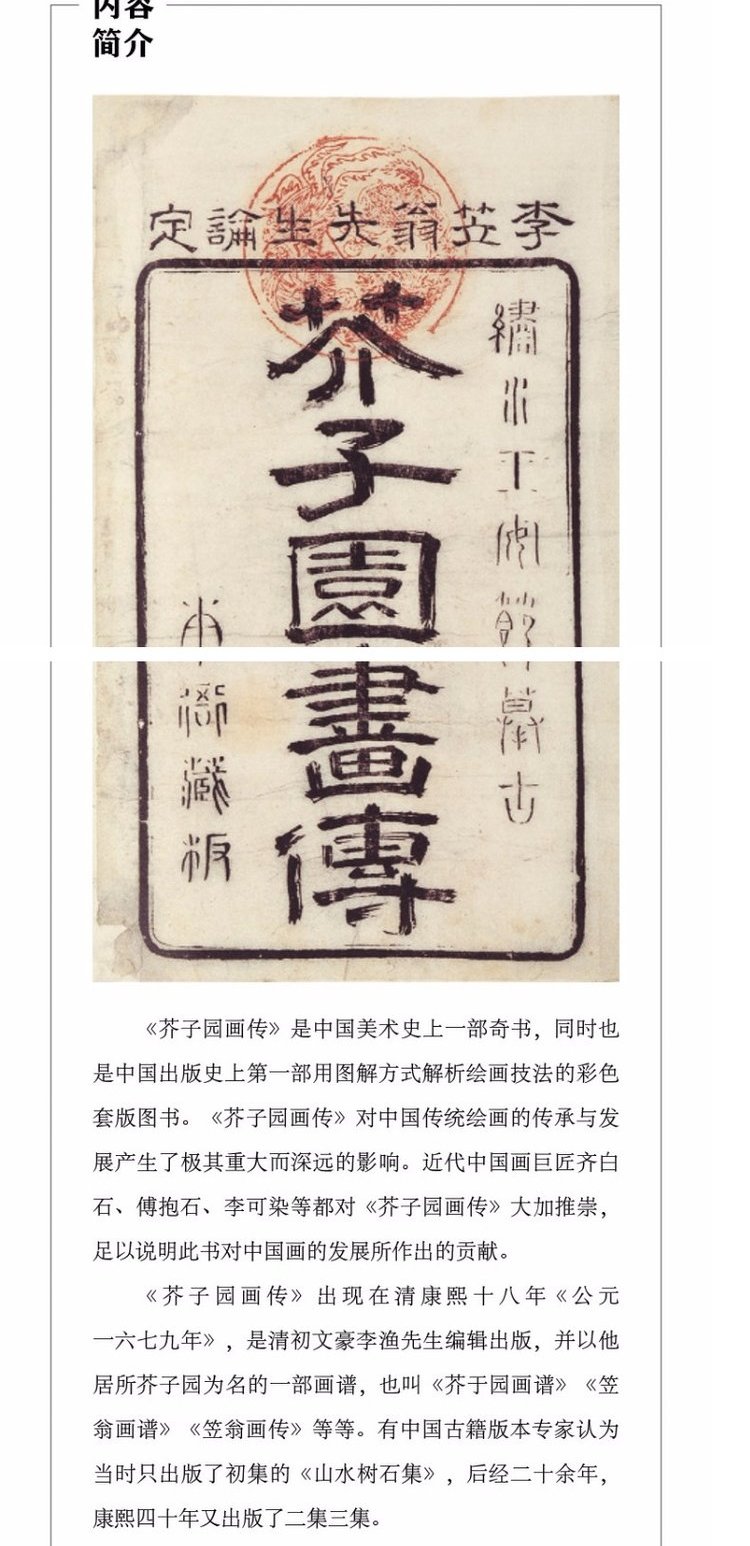 内容
简介
李笠翁先生論定
繡水王安節摹古
芥子園畫傳
本衙藏板
《芥子园画传》是中国美术史上一部奇书，同时也
是中国出版史上第一部用图解方式解析绘画技法的彩色
套版图书。《芥子园画传》对中国传统绘画的传承与发
展产生了极其重大而深远的影响。近代中国画巨匠齐白
石、傅抱石、李可染等都对《芥子园画传》大加推崇，
足以说明此书对中国画的发展所作出的贡献。
《芥子园画传》出现在清康熙十八年《公元
一六七九年》，是清初文豪李渔先生编辑出版，并以他
居所芥子园为名的一部画谱，也叫《芥于园画谱》《笠
翁画谱》《笠翁画传》等等。有中国古籍版本专家认为
当时只出版了初集的《山水树石集》，后经二十余年，
康熙四十年又出版了二集三集。